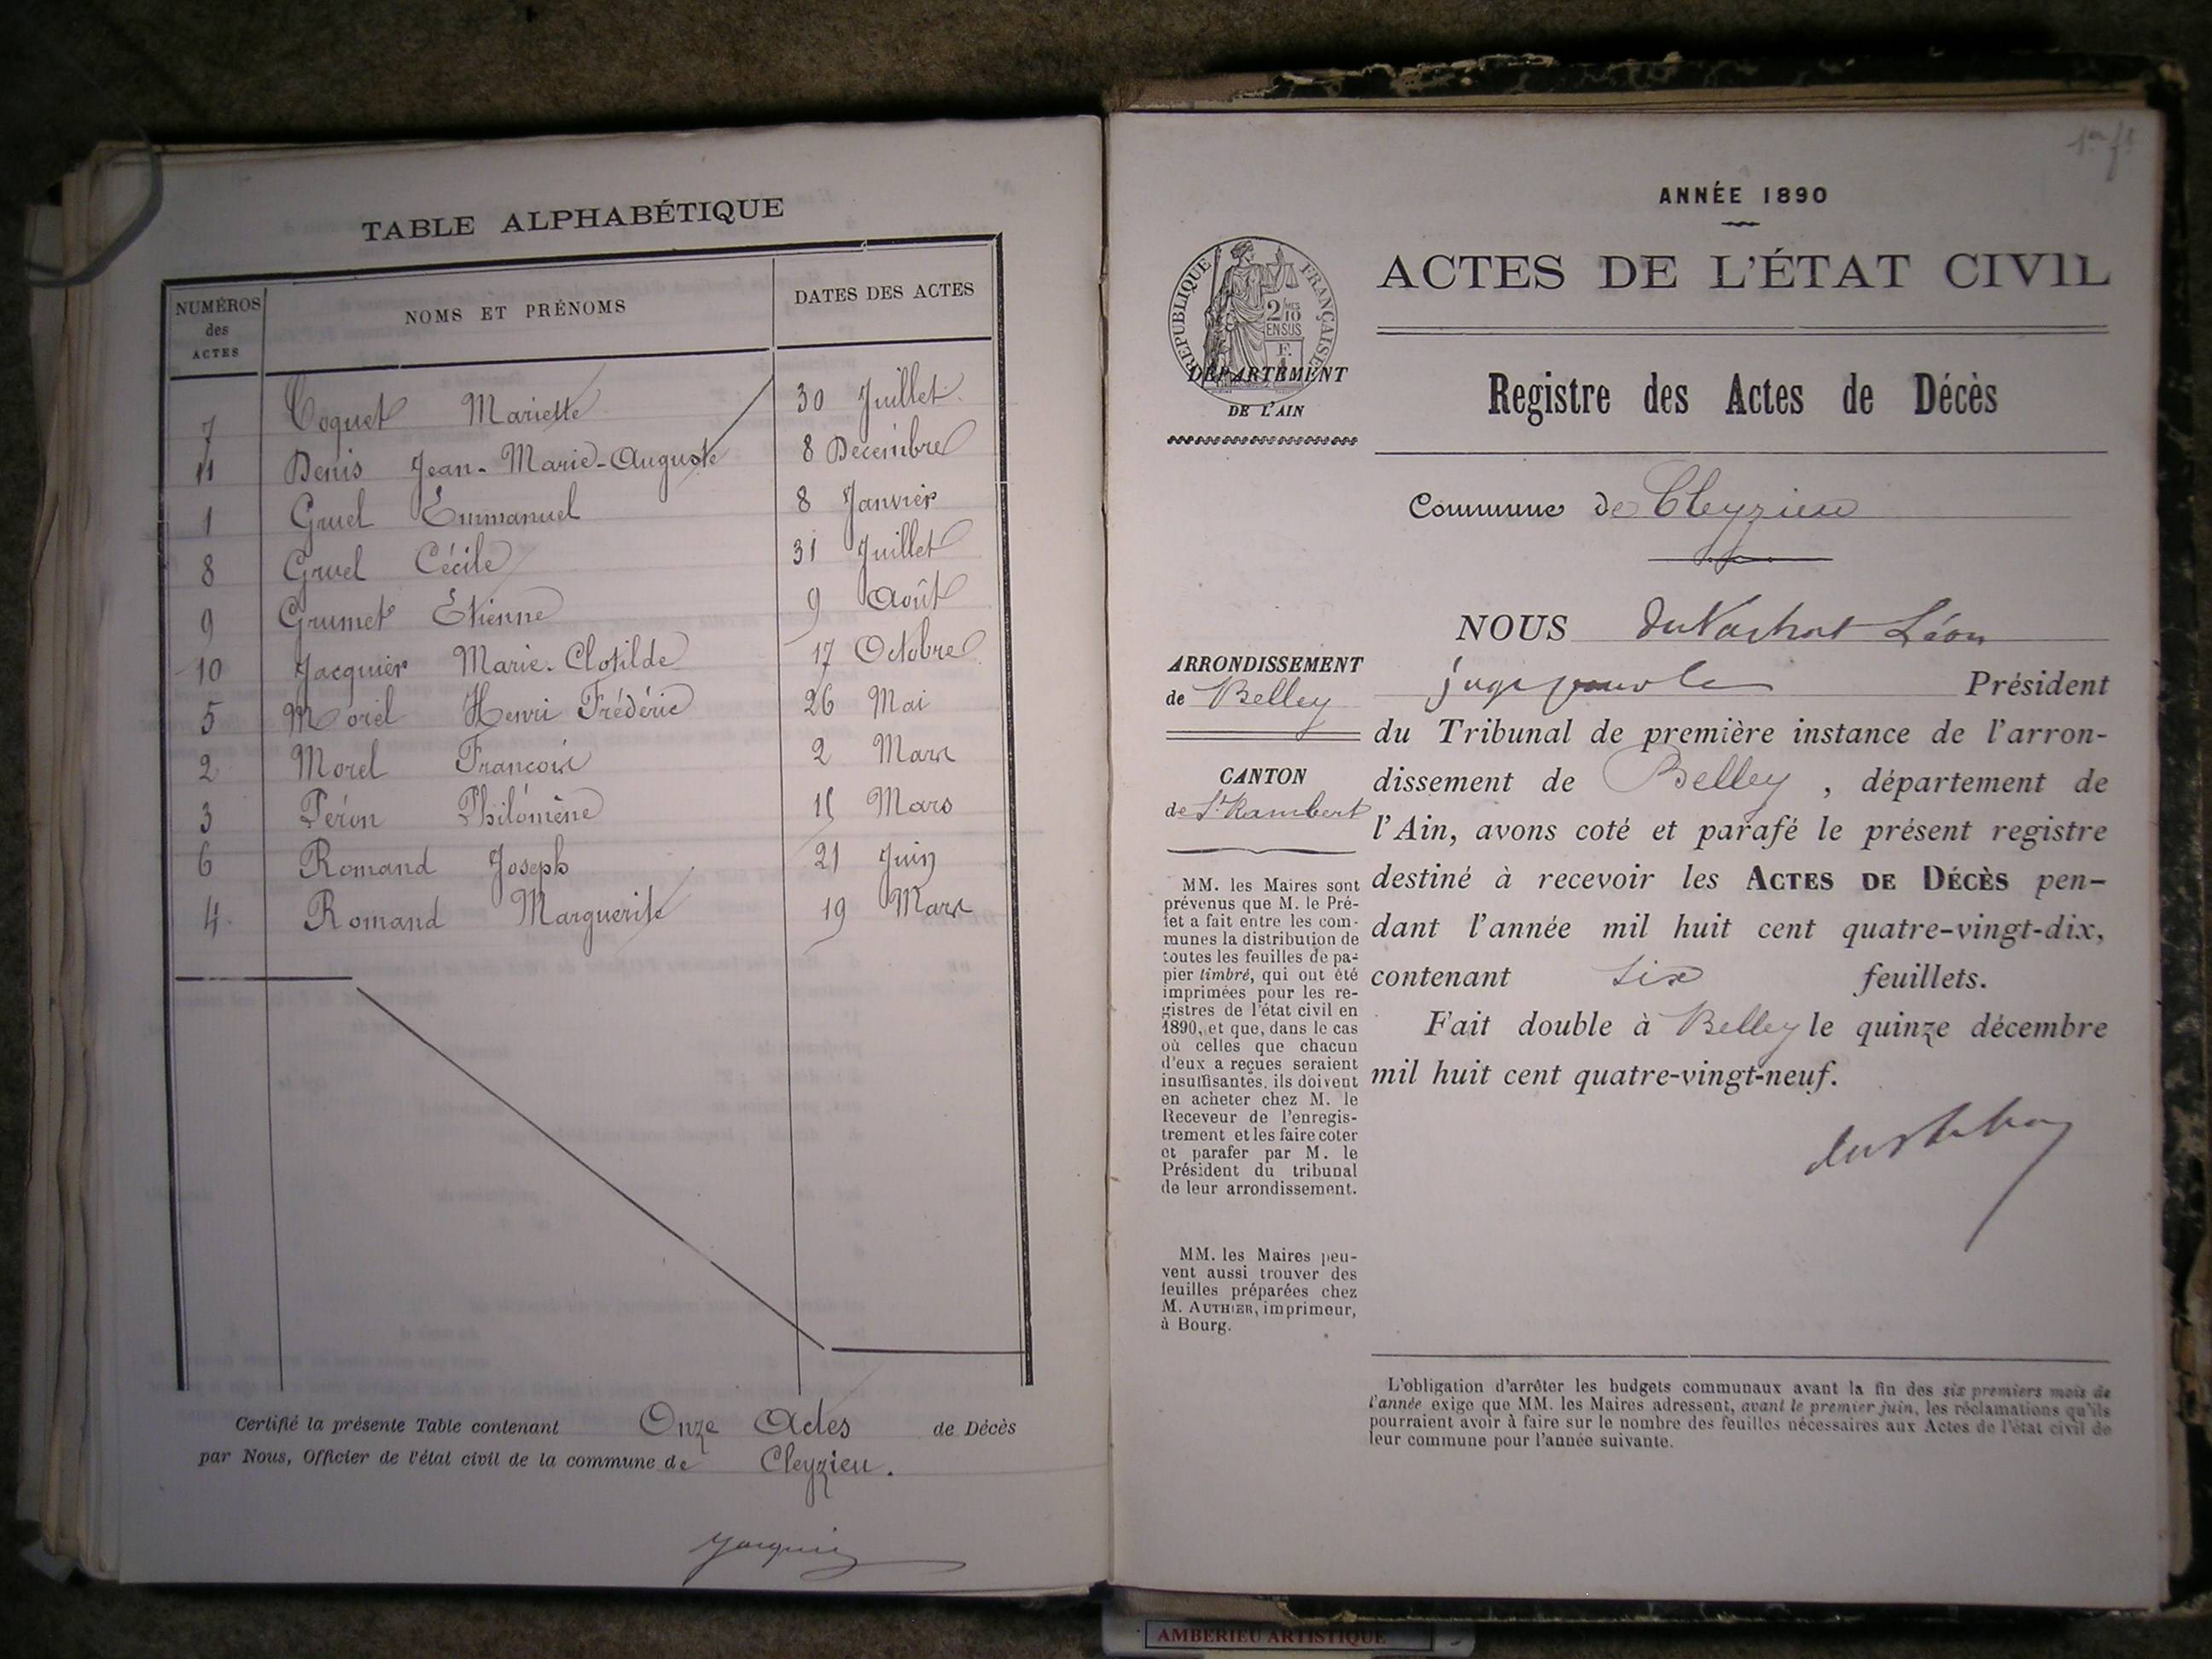 TABLE ALPHABÉTIQUE
NUMÉROS des ACTES
NOMS ET PRÉNOMS
DATES DES ACTES
7 Coquet Mariette 30 Juillet
11 Denis Jean-Marie-Auguste 8 Décembre
1 Gruel Emmanuel 8 Janvier
8 Gruel Cécile 31 Juillet
9 Grumet Étienne 9 Août
10 Jacquier Marie-Clotilde 17 Octobre
5 Morel Henri Frédéric 26 Mai
2 Morel François 2 Mars
3 Péron Philomène 11 Mars
6 Romand Joseph 21 Juin
4 Romand Marguerite 19 Mars
Certifié la présente Table contenant Onze Actes de Décès
par Nous, Officier de l'état civil de la commune de Cleyzieu.
1er ft
ANNÉE 1890
RÉPUBLIQUE FRANÇAISE
2/10 MES
EN SUS
F.
DÉPARTEMENT
DE L'AIN
ACTES DE L'ÉTAT CIVIL
Registre des Actes de Décès
Commune de Cleyzieu
ARRONDISSEMENT
de Belley
CANTON
de St Rambert
MM. les Maires sont
prévenus que M. le Pré-
fet a fait entre les com-
munes la distribution de
toutes les feuilles de pa-
pier timbré, qui ont été
imprimées pour les re-
gistres de l'état civil en
1890, et que, dans le cas
où celles que chacun
d'eux a reçues seraient
insuffisantes, ils doivent
en acheter chez M. le
Receveur de l'enregis-
trement et les faire coter
et parafer par M. le
Président du tribunal
de leur arrondissement.
MM. les Maires peu-
vent aussi trouver des
feuilles préparées chez
M. AUTHIER, imprimeur,
à Bourg.
NOUS Léon
juge Président
du Tribunal de première instance de l'arron-
dissement de Belley, département de
l'Ain, avons coté et parafé le présent registre
destiné à recevoir les ACTES DE DÉCÈS pen-
dant l'année mil huit cent quatre-vingt-dix,
contenant six feuillets.
Fait double à Belley le quinze décembre
mil huit cent quatre-vingt-neuf.
L'obligation d'arrêter les budgets communaux avant la fin des six premiers mois de
l'année exige que MM. les Maires adressent, avant le premier juin, les réclamations qu'ils
pourraient avoir à faire sur le nombre des feuilles nécessaires aux Actes de l'état civil de
leur commune pour l'année suivante.
AMBERIEU ARTISTIQUE